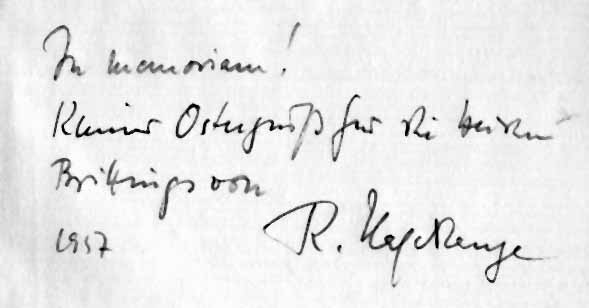 In memoriam!
Kleiner Ostergruß für die beiden
Brittings von
1957 R. Hagelstange